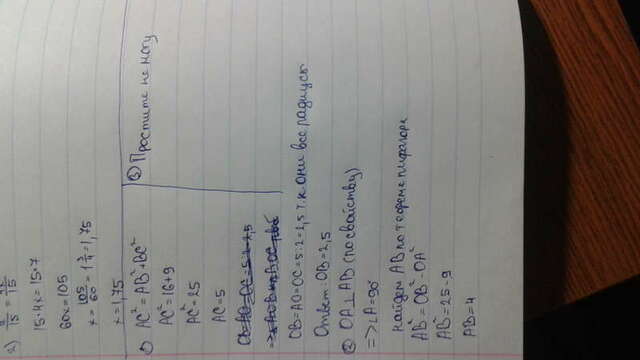 2)
15·4x=15·7
60x=105
x=105/60=1 3/4=1,75
x=1,75
① AC²=AB²+BC²
AC²=16+9
AC²=25
AC=5
OB=AO=OC=5:2=2,5 т.к они все радиусы
Ответ: OB=2,5
② OA⊥AB (по свойству)
=>∠A=90°
найдём AB по теореме пифагора
AB²=OB²-OA²
AB²=25-9
AB=4
③ Простите не могу